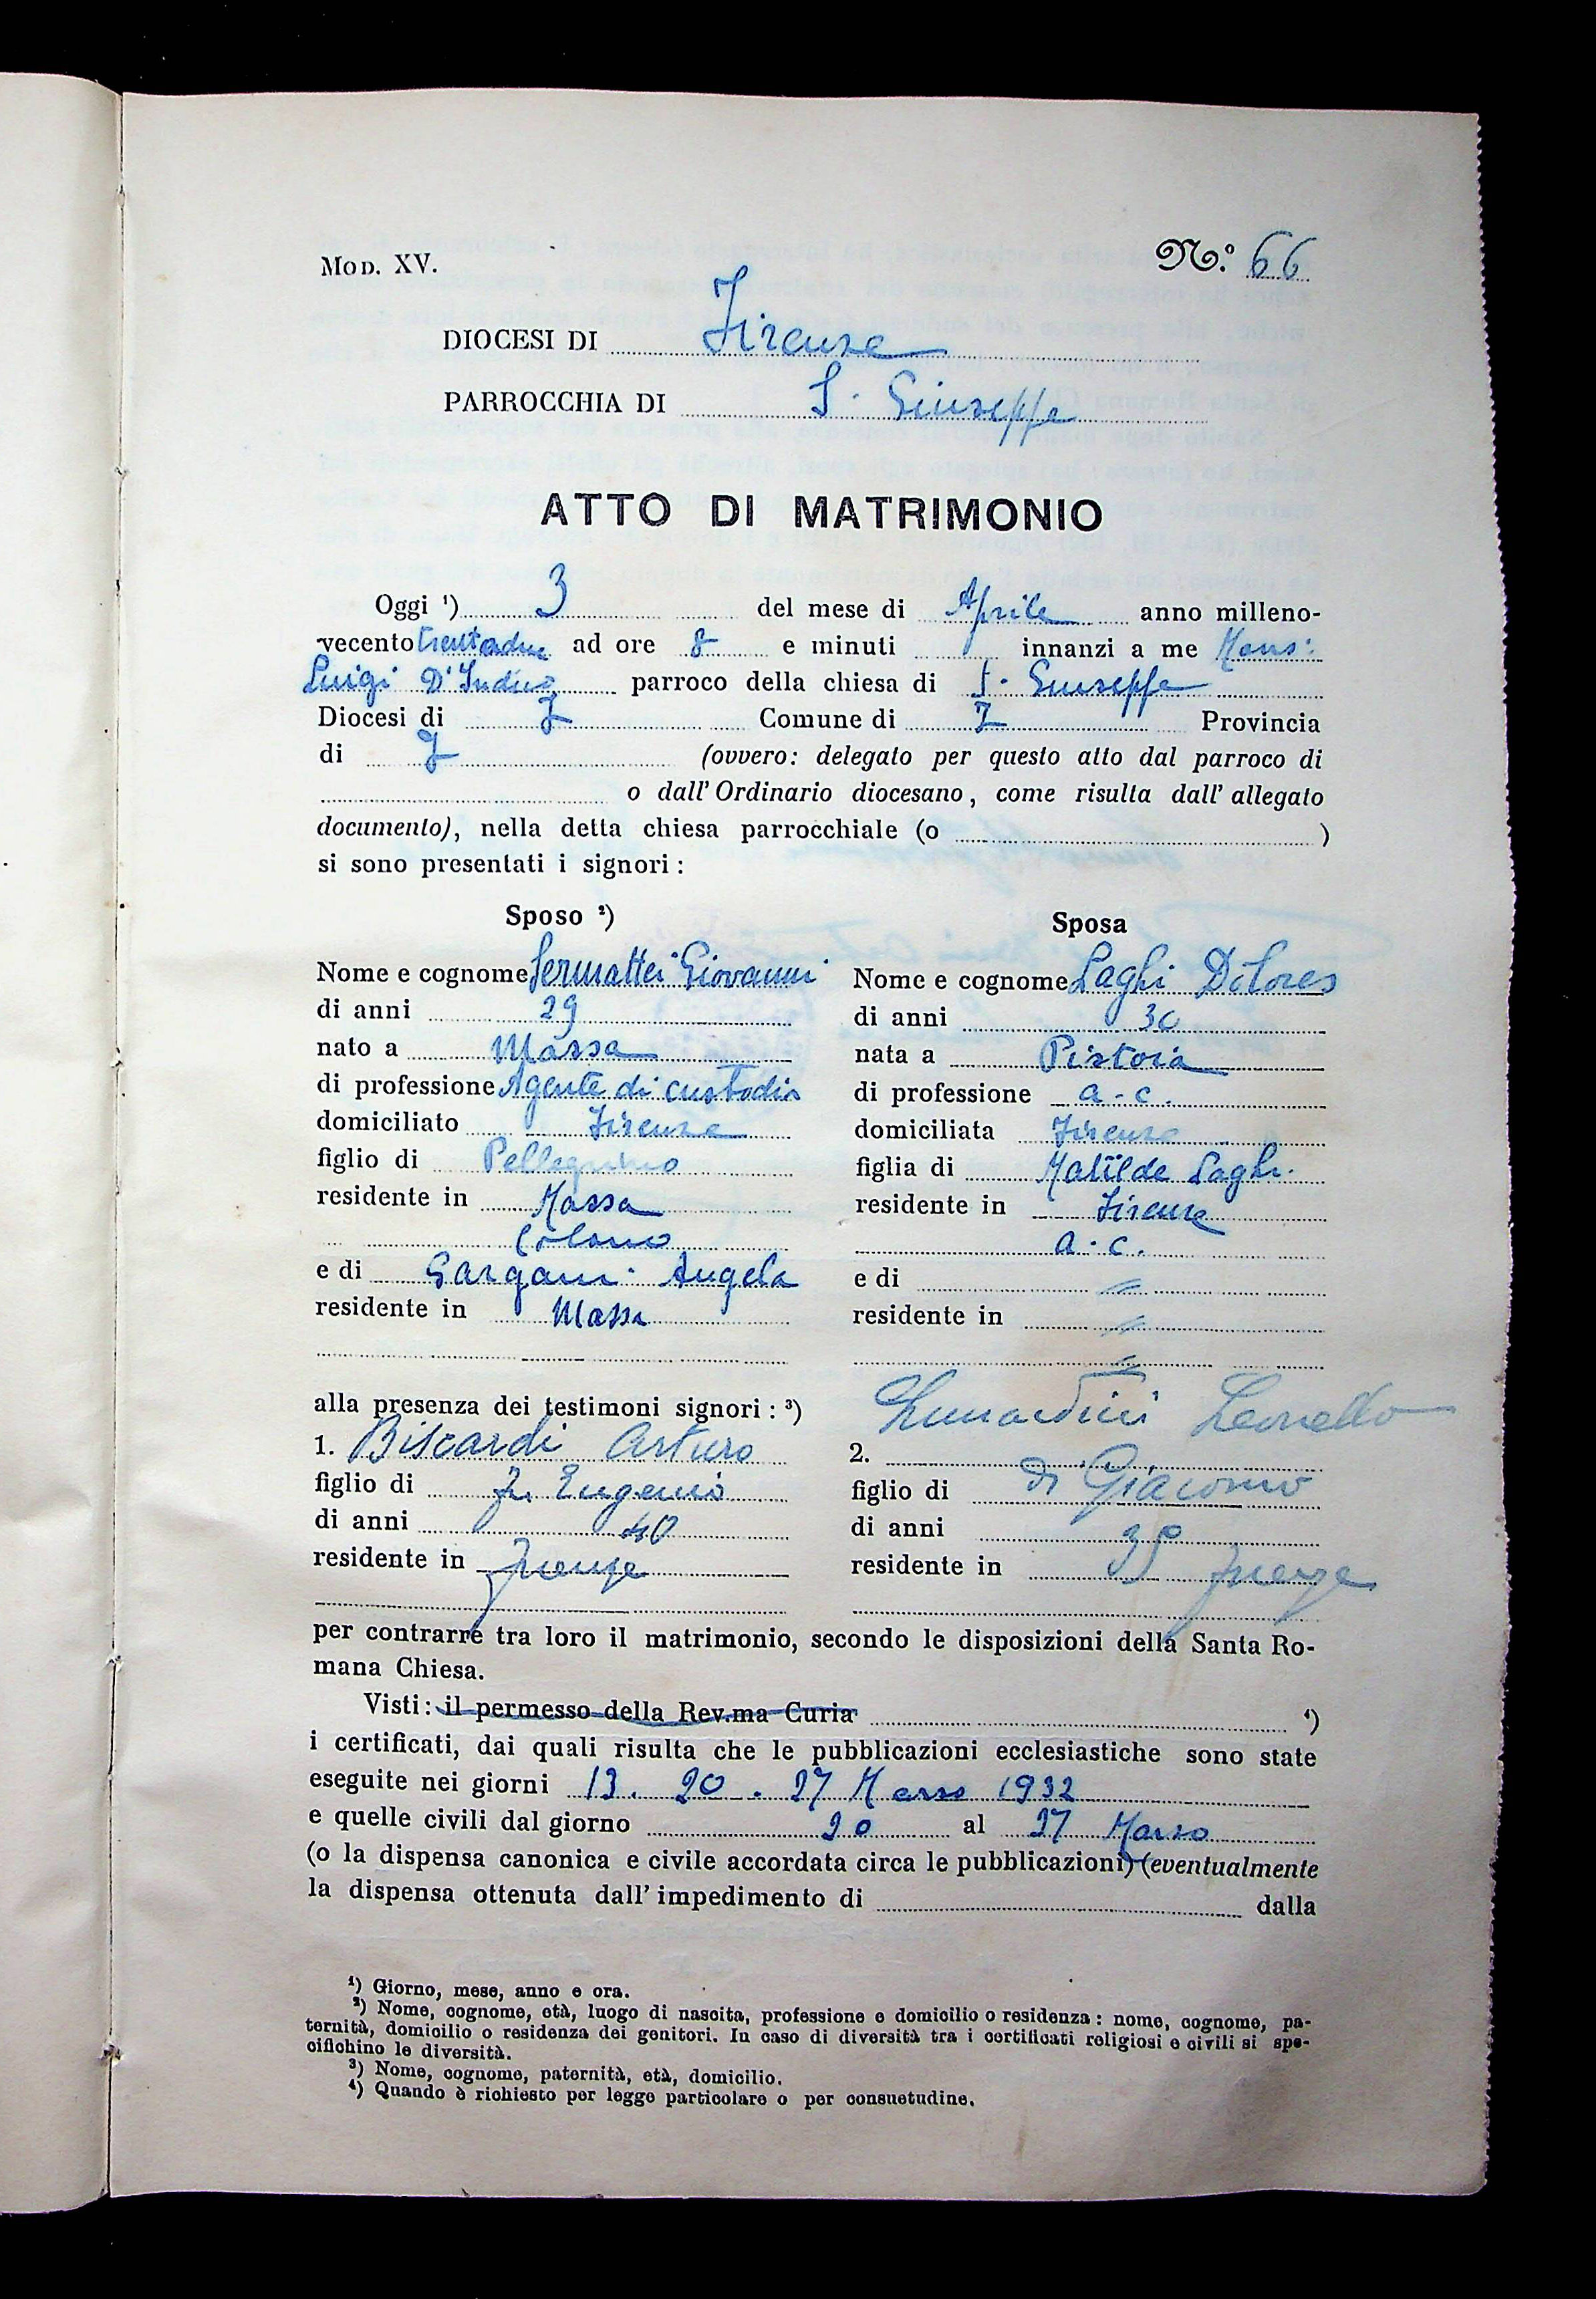 Mod. XV.
N.º 66
DIOCESI DI Firenze
PARROCCHIA DI S. Giuseppe
ATTO DI MATRIMONIO
Oggi ¹) 3 del mese di Aprile anno milleno-
vecento trentadue ad ore 8 e minuti innanzi a me Mons:
Luigi D'Indico parroco della chiesa di S. Giuseppe
Diocesi di F Comune di F Provincia
di F (ovvero: delegato per questo atto dal parroco di
o dall'Ordinario diocesano, come risulta dall'allegato
documento), nella detta chiesa parrocchiale (o )
si sono presentati i signori:
Sposo ²)
Nome e cognome Sermattei Giovanni
di anni 29
nato a Massa
di professione Agente di custodia
domiciliato Firenze
figlio di Pellegrino
residente in Massa
Colono
e di Gargani Angela
residente in Massa
Sposa
Nome e cognome Laghi Dolores
di anni 30
nata a Pistoia
di professione a. c.
domiciliata Firenze
figlia di Matilde Laghi
residente in Firenze
a. c.
e di =
residente in =
=
alla presenza dei testimoni signori: ³)
1. Biscardi Arturo
figlio di fu Eugenio
di anni 40
residente in Firenze
2. Lunardini Leonello
figlio di di Giacomo
di anni 35
residente in Firenze
per contrarre tra loro il matrimonio, secondo le disposizioni della Santa Ro-
mana Chiesa.
Visti: il permesso della Rev.ma Curia ⁴)
i certificati, dai quali risulta che le pubblicazioni ecclesiastiche sono state
eseguite nei giorni 13. 20. 27 Marzo 1932
e quelle civili dal giorno 20 al 27 Marzo
(o la dispensa canonica e civile accordata circa le pubblicazioni) (eventualmente
la dispensa ottenuta dall'impedimento di dalla
¹) Giorno, mese, anno e ora.
²) Nome, cognome, età, luogo di nascita, professione e domicilio o residenza: nome, cognome, pa-
ternità, domicilio o residenza dei genitori. In caso di diversità tra i certificati religiosi e civili si spe-
cifichino le diversità.
³) Nome, cognome, paternità, età, domicilio.
⁴) Quando è richiesto per legge particolare o per consuetudine.